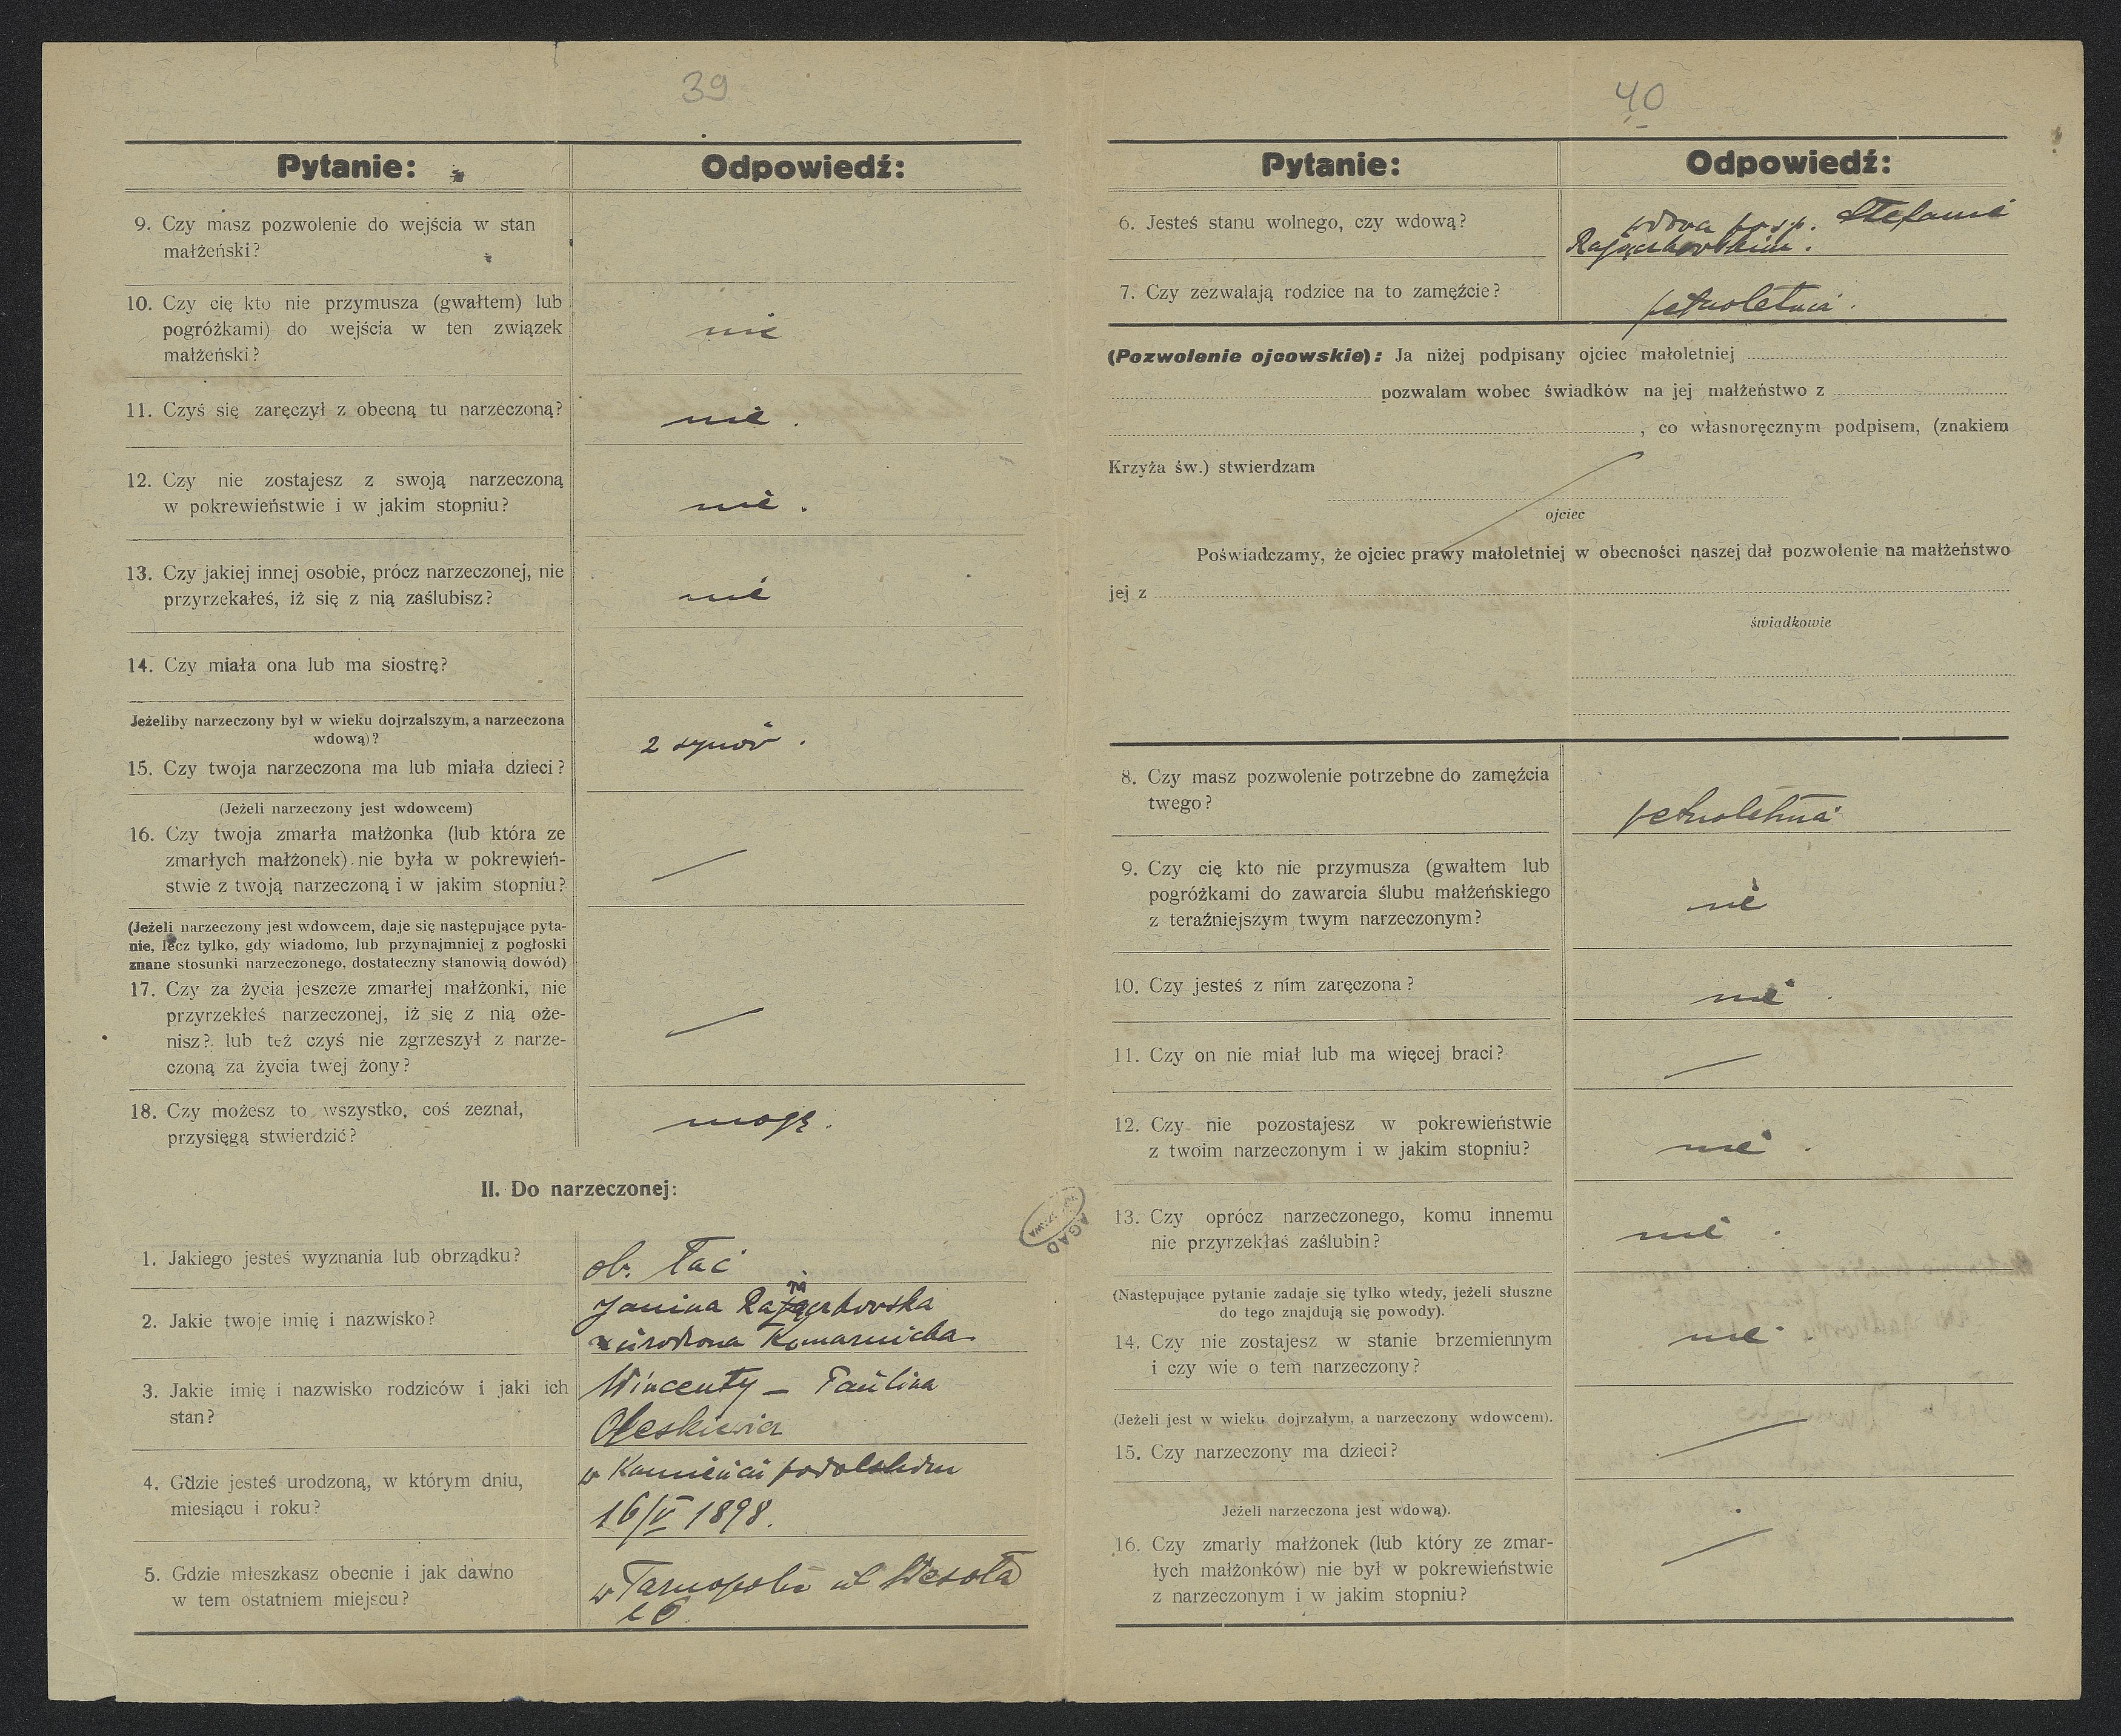 39
Pytanie:
Odpowiedź:
9. Czy masz pozwolenie do wejścia w stan
małżeński?
10. Czy cię kto nie przymusza (gwałtem) lub
pogróżkami) do wejścia w ten związek
małżeński?
nie
11. Czyś się zaręczył z obecną tu narzeczoną?
nie.
12. Czy nie zostajesz z swoją narzeczoną
w pokrewieństwie i w jakim stopniu?
nie.
13. Czy jakiej innej osobie, prócz narzeczonej, nie
przyrzekałeś, iż się z nią zaślubisz?
nie
14. Czy miała ona lub ma siostrę?
Jeżeliby narzeczony był w wieku dojrzalszym, a narzeczona
wdową)?
15. Czy twoja narzeczona ma lub miała dzieci?
2 synów.
(Jeżeli narzeczony jest wdowcem)
16. Czy twoja zmarła małżonka (lub która ze
zmarłych małżonek) nie była w pokrewień-
stwie z twoją narzeczoną i w jakim stopniu?
(Jeżeli narzeczony jest wdowcem, daje się następujące pyta-
nie, lecz tylko, gdy wiadomo, lub przynajmniej z pogłoski
znane stosunki narzeczonego, dostateczny stanowią dowód)
17. Czy za życia jeszcze zmarłej małżonki, nie
przyrzekłeś narzeczonej, iż się z nią oże-
nisz? lub też czyś nie zgrzeszył z narze-
czoną za życia twej żony?
18. Czy możesz to wszystko, coś zeznał,
przysięgą stwierdzić?
mogę.
II. Do narzeczonej:
1. Jakiego jesteś wyznania lub obrządku?
ob. łać
2. Jakie twoje imię i nazwisko?
Janina
urodzona Komarnicka
3. Jakie imię i nazwisko rodziców i jaki ich
stan?
Wincenty – Paulina
Oleskiewicz
4. Gdzie jesteś urodzoną, w którym dniu,
miesiącu i roku?
w Kamieńcu podolskim
16/V 1898.
5. Gdzie mieszkasz obecnie i jak dawno
w tem ostatniem miejscu?
w Tarnopolu ul Wesoła
AGAD
40
Pytanie:
Odpowiedź:
6. Jesteś stanu wolnego, czy wdową?
wdowa po śp. Stefanie
7. Czy zezwalają rodzice na to zamęźcie?
pełnoletnia.
(Pozwolenie ojcowskie): Ja niżej podpisany ojciec małoletniej
pozwalam wobec świadków na jej małżeństwo z
, co własnoręcznym podpisem, (znakiem
Krzyża św.) stwierdzam
ojciec
Poświadczamy, że ojciec prawy małoletniej w obecności naszej dał pozwolenie na małżeństwo
jej z
świadkowie
8. Czy masz pozwolenie potrzebne do zamęźcia
twego?
pełnoletnia
9. Czy cię kto nie przymusza (gwałtem lub
pogróżkami do zawarcia ślubu małżeńskiego
z teraźniejszym twym narzeczonym?
nie
10. Czy jesteś z nim zaręczona?
nie.
11. Czy on nie miał lub ma więcej braci?
12. Czy nie pozostajesz w pokrewieństwie
z twoim narzeczonym i w jakim stopniu?
nie.
13. Czy oprócz narzeczonego, komu innemu
nie przyrzekłaś zaślubin?
nie.
(Następujące pytanie zadaje się tylko wtedy, jeżeli słuszne
do tego znajdują się powody).
14. Czy nie zostajesz w stanie brzemiennym
i czy wie o tem narzeczony?
nie
(Jeżeli jest w wieku dojrzałym, a narzeczony wdowcem).
15. Czy narzeczony ma dzieci?
Jeżeli narzeczona jest wdową).
16. Czy zmarły małżonek (lub który ze zmar-
łych małżonków) nie był w pokrewieństwie
z narzeczonym i w jakim stopniu?